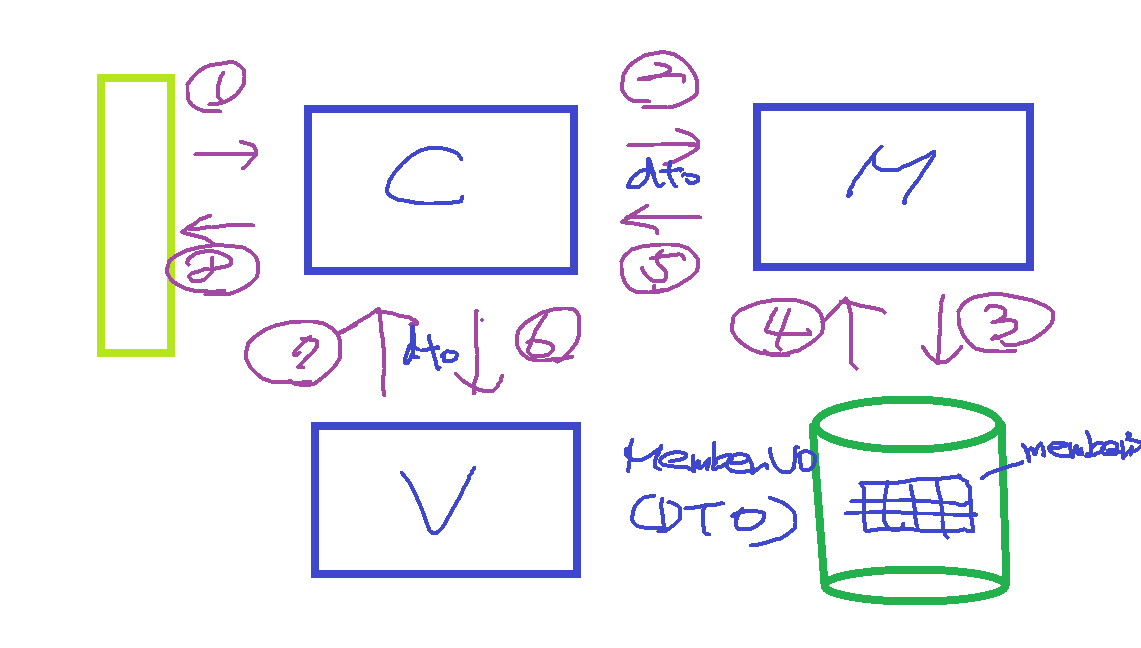 1
2
C
dto
M
8
5
7
dto
6
4
3
V
MemberVO
(DTO)
members